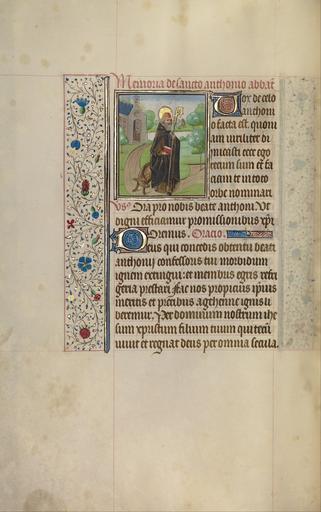 Memoria de sancto anthonio abbat
Vox de celo
ad anthoni
o facta est. quoni
am viriliter di
micasti ecce ego
tecum sum et fa
ciam te in toto
orbe nominari
vs Ora pro nobis beate anthoni Vt
digni efficiamur promissionibus xpi
Oremus. Oracio.
Deus qui concedis obtentu beati
anthonij confessoris tui morbidum
ignem extingui: et membris egris refri
geria prestari Fac nos propicius ipsius
meritis et precibus a gehenne ignis li
beremur. Per dominum nostrum ihe
sum xpistum filium tuum qui tecu
viuit et regnat deus per omnia secula.